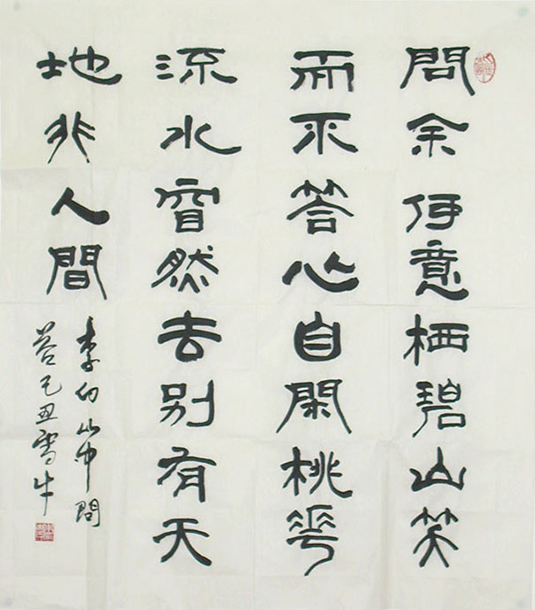 問余何意栖碧山笑
而不答心自閑桃華
流水窅然去別有天
地非人間
李白山中問
答己丑雪牛